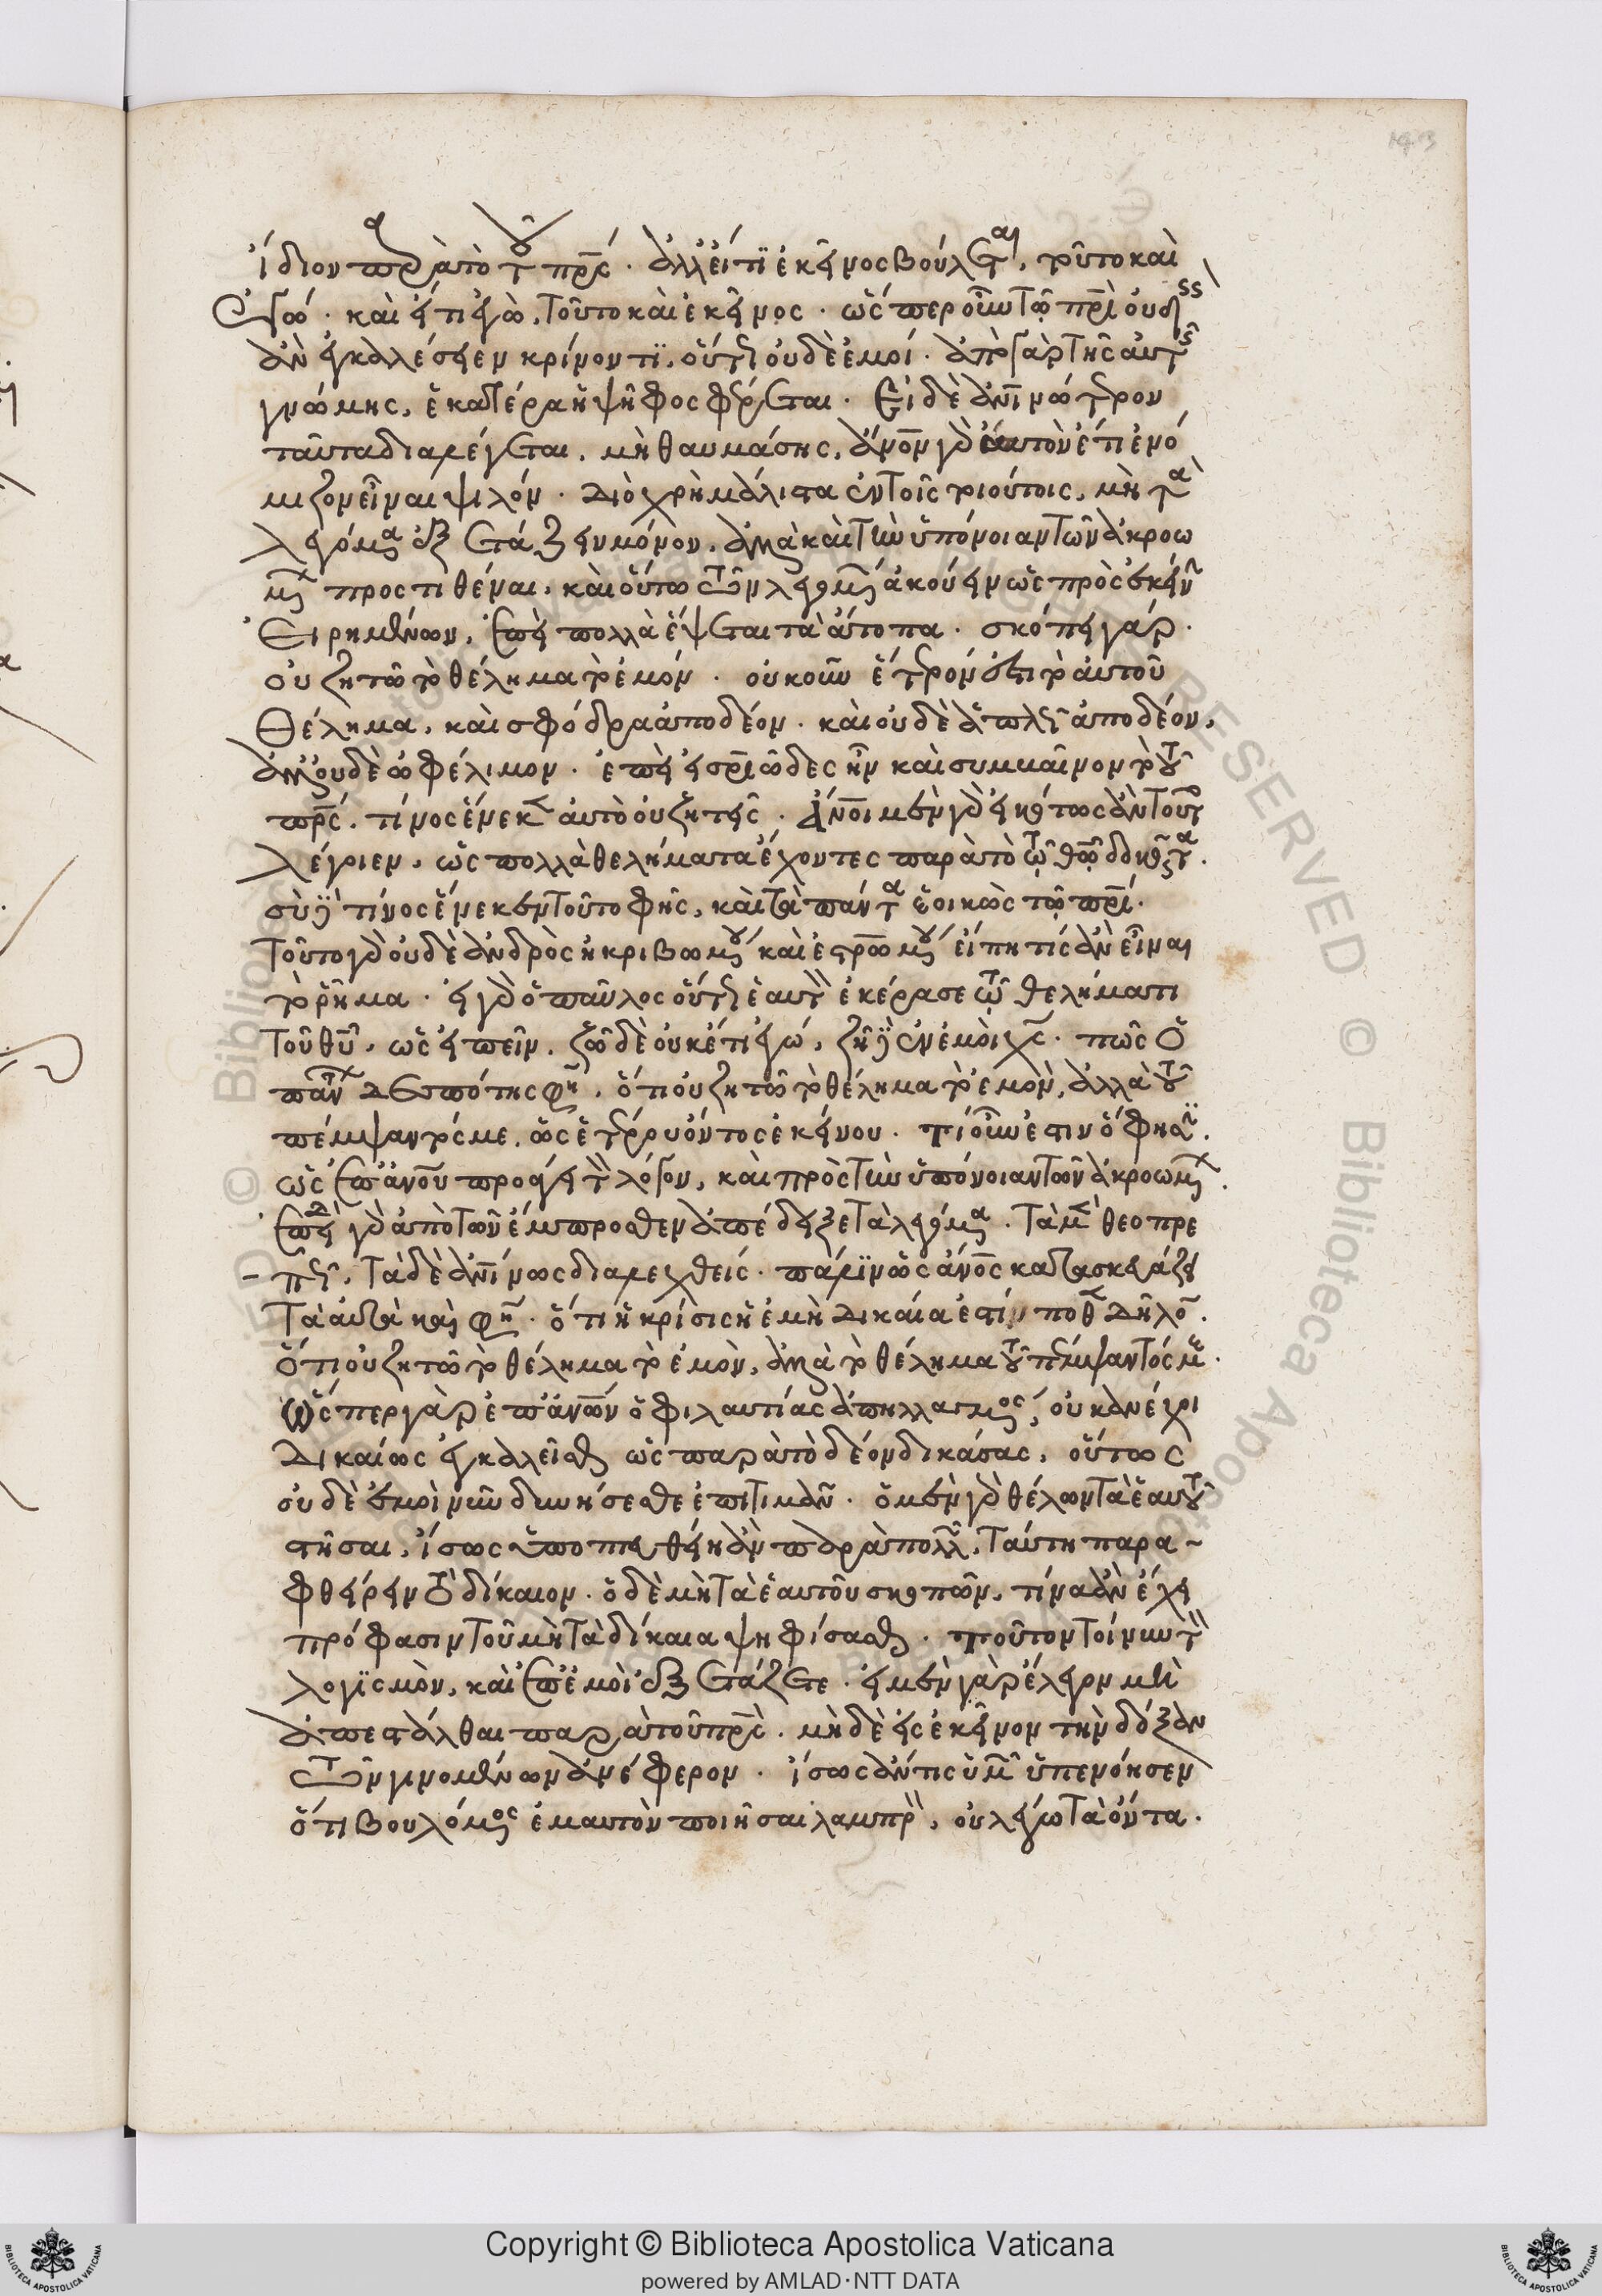 ἴδιον παρὰ τὸ τοῦ πρς. ἀλλ' εἴτι ἐκεῖνος βούλεται, τοῦτο καὶ
ἐγώ. καὶ εἴτι ἐγὼ, τοῦτο καὶ ἐκεῖνος. ὥσπερ οὖν τῷ πρὶ οὐδεὶς
ἂν ἐγκαλέσειεν κρίνοντι, οὕτως οὐδὲ ἐμοί. ἀπὸ γὰρ τῆς αὐτῆς
γνώμης, ἑκατέρα ἡ ψῆφος φέρεται. Εἰ δὲ ἀνινώτερον
ταῦτα διαλέγεται, μὴ θαυμάσης, ἄνον γὰρ αὐτὸν ἔτι ἐνό
μιζον εἶναι ψιλόν. διὸ χρὴ μάλιστα ἐν τοῖς τοιούτοις, μὴ τὰ
λεγόμενα ἐξετάζειν μόνον, ἀλλὰ καὶ τὴν ὑπόνοιαν τῶν ἀκροω
μένων προστιθέναι, καὶ οὕτω τῶν λεγομένων ἀκούειν ὡς πρὸς ἐκείνην
εἰρημένων, ἐπεὶ πολλὰ ἕψεται τὰ ἄτοπα. σκόπει γάρ.
οὐ ζητῶ τὸ θέλημα τὸ ἐμόν. οὐκοῦν ἕτερόν ἐστι τὸ αὐτοῦ
θέλημα, καὶ σφόδρα ἀποδέον. καὶ οὐδὲ ἁπλῶς ἀποδέον,
ἀλλ' οὐδὲ ὠφέλιμον. ἐπεὶ εἰ σωτηριῶδες ἦν καὶ συμβαῖνον τῷ τοῦ
πρς. τίνος ἕνεκεν αὐτὸ οὐ ζητεῖς. ἄνοι μὲν γὰρ εἰκότως ἂν τοῦτο
λέγοιεν, ὡς πολλὰ θελήματα ἔχοντες παρὰ τὸ τῷ θῷ δοκοῦντα.
σὺ δὲ τίνος ἕνεκεν τοῦτο φῆς, κατὰ πάντα ἐοικὼς τῷ πρί.
Τοῦτο γὰρ οὐδὲ ἀνδρὸς ἠκριβωμένου καὶ ἐστρωμένου εἴπη τίς ἂν εἶναι
τὸ ῥῆμα. εἰ γὰρ ὁ παῦλος οὕτως ἑαυτὸν ἐκέρασε τῷ θελήματι
τοῦ θυ, ὡς εἰπεῖν. ζῶ δὲ οὐκέτι ἐγώ, ζῇ δὲ ἐν ἐμοὶ χς. πῶς ὁ
πάντων δεσπότης φησὶν, ὅτι οὐ ζητῶ τὸ θέλημα τὸ ἐμὸν, ἀλλὰ τοῦ
πέμψαντός με, ὡς ἑτέρου ὄντος ἐκείνου. τί οὖν ἐστιν ὅ φησιν.
ὡς ἐπὶ ἀνου προάγει τὸν λόγον, καὶ πρὸς τὴν ὑπόνοιαν τῶν ἀκροωμένων.
ἐπειδὴ γὰρ ἀπὸ τῶν ἔμπροσθεν ἀπέδειξε τὰ λεγόμενα, τὰ μὲν θεοπρε
πῶς, τὰ δὲ ἀνίνως διαλεχθείς. πάλιν ὡς ἄνος κατασκευάζει
τὰ αὐτὰ καὶ φησὶν. ὅτι ἡ κρίσις ἡ ἐμὴ δικαία ἐστίν ποθεν δῆλον.
ὅτι οὐ ζητῶ τὸ θέλημα τὸ ἐμὸν, ἀλλὰ τὸ θέλημα τοῦ πέμψαντός με.
ὥσπερ γὰρ ἐπὶ ἀνων ὁ φιλαυτίας ἀπηλλαγμένος, οὐκ ἂν ἔχοι
δικαίως ἐγκαλεῖσθαι ὡς παρὰ τὸ δέον δικάσας, οὕτως
οὐδὲ ἐμοὶ νῦν δυνήσεσθε ἐπιτιμᾶν. ὁ μὲν γὰρ θέλων τὰ ἑαυτοῦ
στῆσαι, ἴσως ὑποπτευθείη ἂν παρὰ πολλῶν, ταύτη παρα-
φθείρειν τὸ δίκαιον. ὁ δὲ μὴ τὰ ἑαυτοῦ σκοπῶν, τίνα ἂν ἔχη
πρόφασιν τοῦ μὴ τὰ δίκαια ψηφίσασθαι. τοῦτον τοίνυν τὸν
λογισμὸν, καὶ ἐπ' ἐμοὶ ἐξετάζετε. εἰ μὲν γὰρ ἔλεγον μὴ
ἀπεστάλθαι παρὰ τοῦ πρς. μὴ δὲ εἰς ἐκεῖνον τὴν δόξαν
τῶν γινομένων ἀνέφερον. ἴσως ἄν τις ὑμῶν ὑπενόησεν
ὅτι βουλόμενος ἐμαυτὸν ποιῆσαι λαμπρὸν, οὐ λέγω τὰ ὄντα.